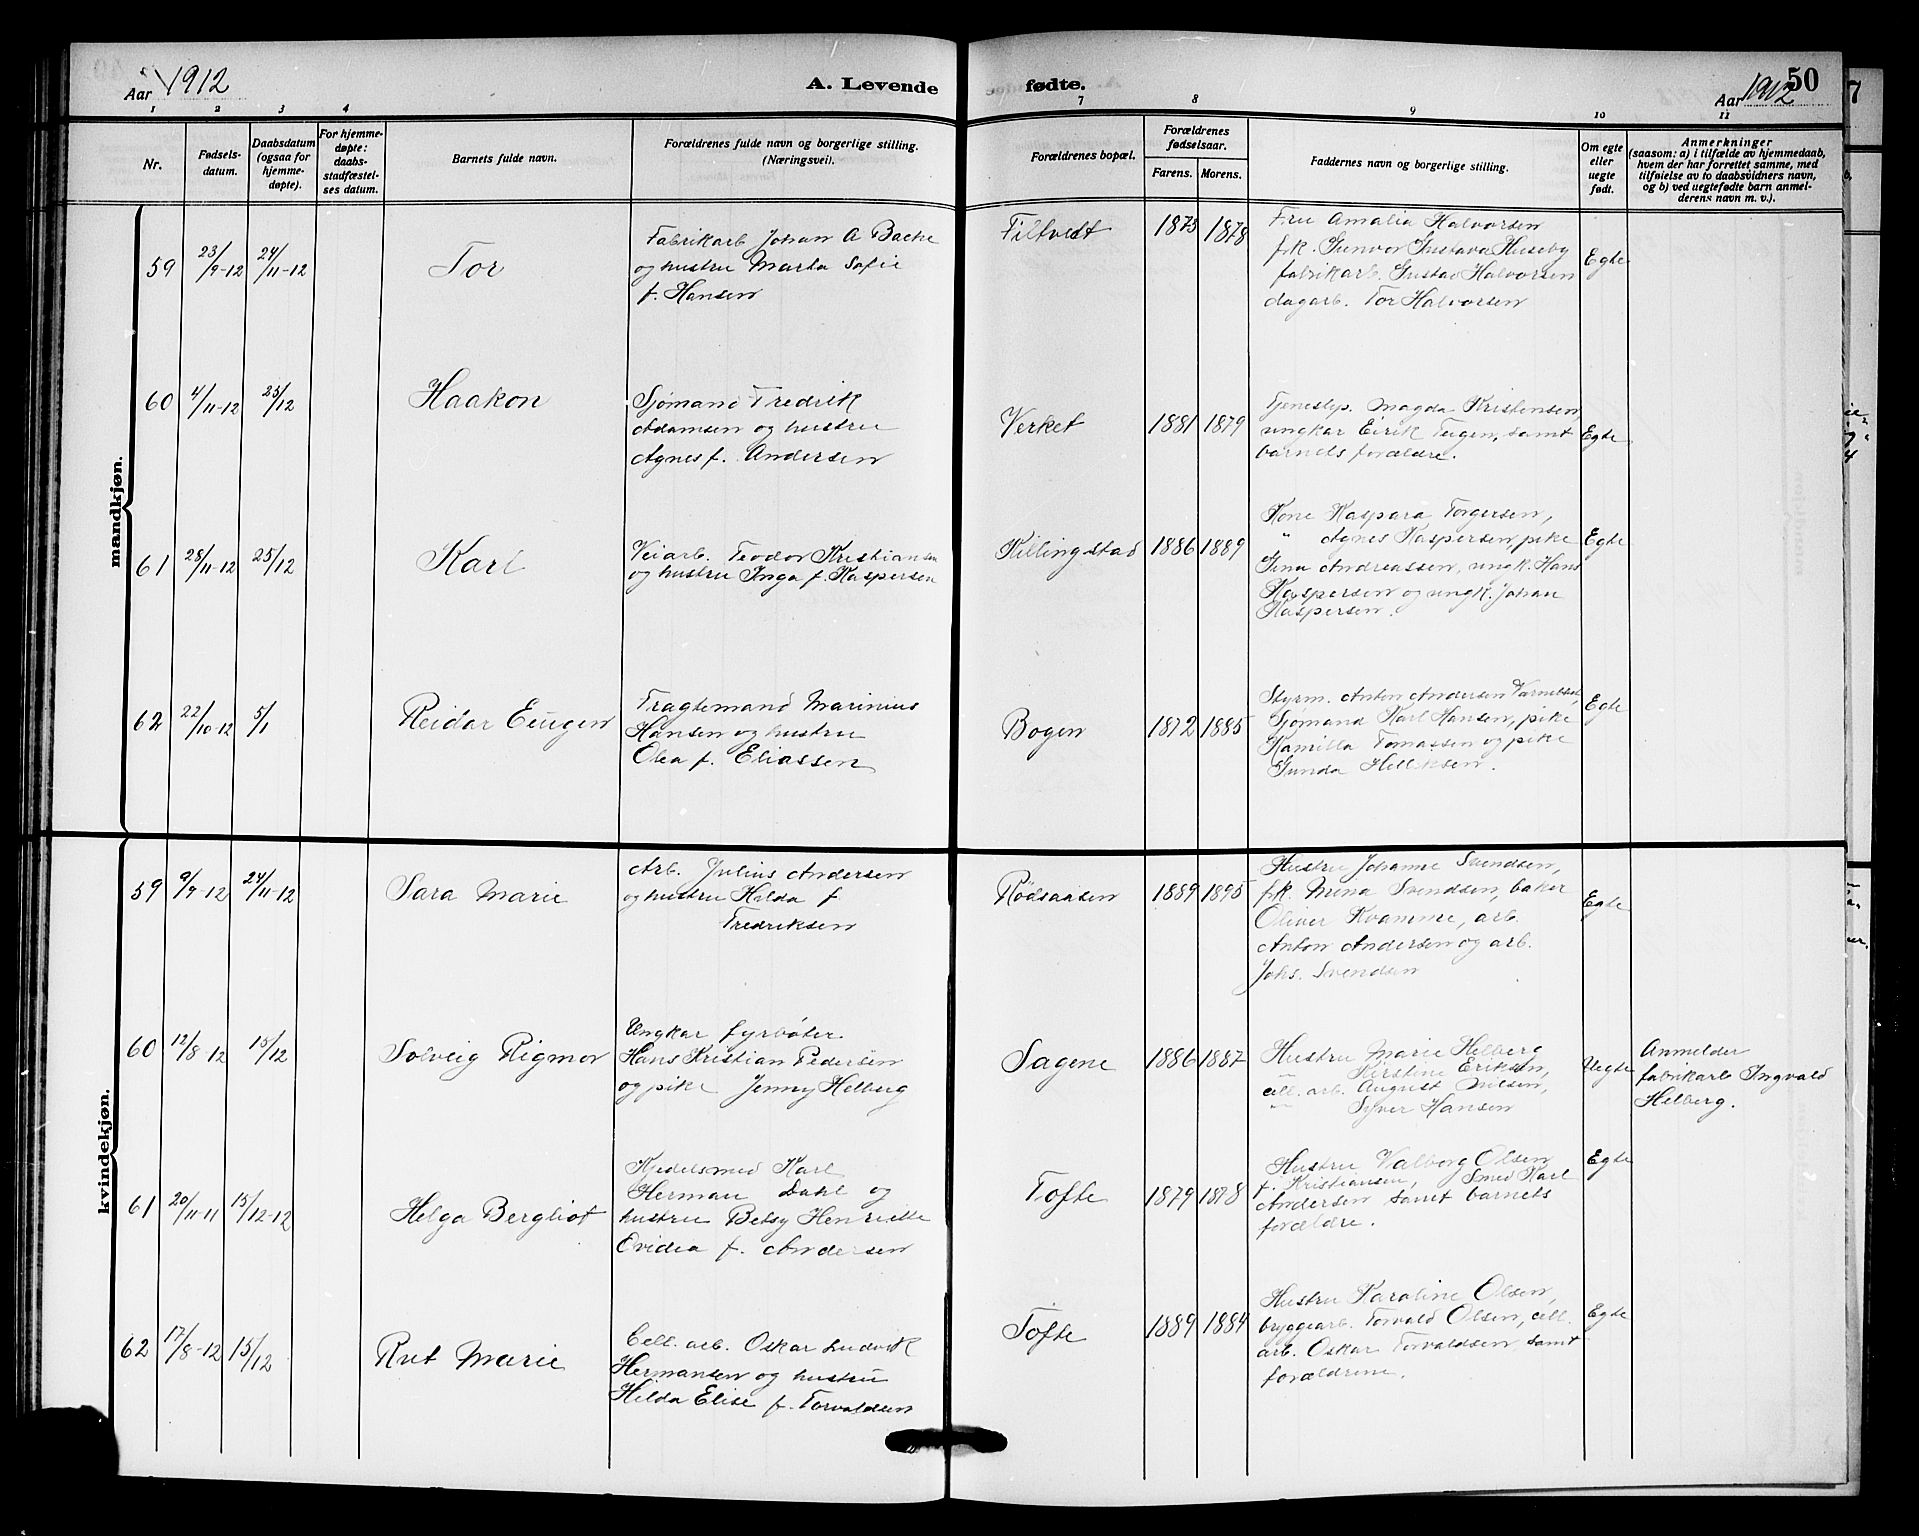 Aar 1912
A. Levende fødte.
Aar 1912
50
1 2 3 4 7 8 9 10 11
Nr.
Fødsels-
datum.
Daabsdatum
(ogsaa for
hjemme-
døpte).
For hjemme-
døpte:
daabs-
stadfæstel-
ses datum.
Barnets fulde navn.
Forældrenes fulde navn og borgerlige stilling.
(Næringsvei).
Forældrenes bopæl.
Forældrenes
fødselsaar.
Farens. Morens.
Faddernes navn og borgerlige stilling.
Om egte
eller
uegte
født.
Anmerkninger
(saasom: a) i tilfælde av hjemmedaab,
hvem der har forrettet samme, med
tilføielse av to daabsvidners navn,
og b) ved uegtefødte barn anmel-
derens navn m. v.).
mandkjøn.
59
23/9-12
24/11-12
Tor
Fabrikarb Johan A Bache
og hustru Marta Sofie
f. Hansen
Filtvedt
1873
1878
Fru Amalia Halvorsen
f.k. Gunvor Gustava Huseby
fabrikarb. Gustav Halvorsen
dagarb. Tor Halvorsen
Egte
60
4/11-12
25/12
Haakon
Sjømand Fredrik
Adamsen og hustru
Agnes f. Andersen
Verket
1881
1879
Tjenestep. Magda Kristensen,
ungkar Eirik Teigen, samt
barnets forældre.
Egte
61
28/11-12
25/12
Karl
Veiarb. Teodor Kristiansen
og hustru Inga f. Kaspersen
Killingstad
1886
1889
Kone Kaspara Torgersen,
" Agnes Kaspersen, pike
Gina Andreassen, ungk. Hans
Kaspersen og ungk. Johan
Kaspersen.
Egte
62
22/10-12
5/1
Reidar Eugen
Fragtemand Marinius
Hansen og hustru
Olea f. Eliassen
Bogen
1872
1885
Styrm. Anton Andersen
Sjømand Karl Hansen, pike
Kamilla Tomassen og pike
Gunda
Egte
kvindekjøn.
59
9/9-12
24/11-12
Sara Marie
Arb. Julius Andersen
og hustru Hilda f
Fredriksen
Rødsaasen
1889
1895
Hustru Johanne Svendsen,
f.k. Mina Svendsen, baker
Oliver Kvamme, arb.
Anton Andersen og arb.
Johs. Svendsen
Egte
60
12/8-12
15/12
Solveig Rigmor
Ungkar fyrbøter
Hans Kristian Pedersen
og pike Jenny Helberg
Sagene
1886
1887
Hustru Marie Helberg
" Kirstine Eriksen,
cell. arb. August Nilsen,
" Syver Hansen
Uegte
Anmelder
fabrikarb Ingvald
Helberg.
61
20/11-11
15/12-12
Helga Bergliot
Kjedelsmed Karl
Herman Dahl og
hustru Betsy Henriette
Ovidia f. Andersen
Tofte
1879
1878
Hustru Valborg Olsen
f. Kristiansen, Smed Karl
Andersen samt barnets
forældre.
Egte
62
17/8-12
15/12
Rut Marie
Cell. arb. Oskar Ludvik
Hermansen og hustru
Hilda Elise f. Torvaldsen
Tofte
1889
1884
Hustru Karoline Olsen,
bryggearb. Torvald Olsen, cell.
arb. Oskar Torvaldsen, samt
forældrene.
Egte